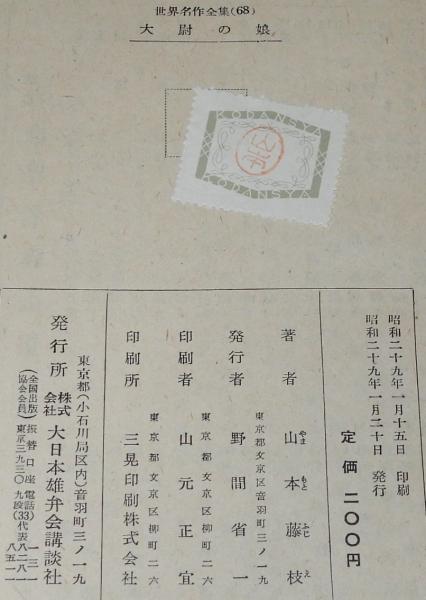 世界名作全集(68)
大尉の娘
KODANSYA
KODANSYA
昭和二十九年一月十五日 印刷
昭和二十九年一月二十日 発行
定価 二〇〇円
著者 山本藤枝
やま もと ふじ え
東京都文京区音羽町三ノ一九
発行者 野間省一
東京都文京区柳町二六
印刷者 山元正宜
東京都文京区柳町二六
印刷所 三晃印刷株式会社
東京都(小石川局区内)音羽町三ノ一九
発行所 株式会社 大日本雄弁会講談社
(全国出版協会会員) 振替口座 東京三九三〇 電話 九段(33)代表